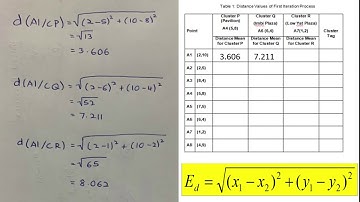 d(A1/CP) = √(2-5)² + (10-8)²
= √13
= 3.606
d(A1/CQ) = √(2-6)² + (10-4)²
= √52
= 7.211
d(A1/CR) = √(2-1)² + (10-2)²
= √65
= 8.062
Table 1: Distance Values of First Iteration Process
Point
Cluster P
(Pavilion)
A4 (5,8)
Distance Mean
for Cluster P
Cluster Q
A6 (6,4)
Distance Mean
for Cluster Q
Cluster R
(Low Yat Plaza)
A7(1,2)
Distance Mean
for Cluster R
Cluster
Tag
A1 (2,10) 3.606 7.211
A2 (2,5)
A3 (8,4)
A4 (5,8)
A5 (7,5)
A6 (6,4)
A7 (1,2)
A8 (4,9)
E_d = √(x₁ − x₂)² + (y₁ − y₂)²